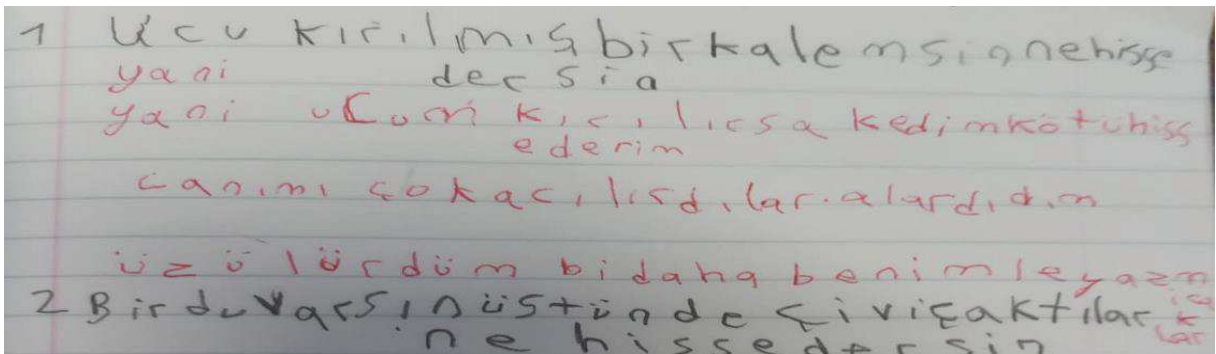 1 Ucu kırılmış birkalemsin nehisse
yani dersin
yani ucum kırılırsa kedimkötühiss
ederim
canımı çokacılırdılar.alardıdım
üzülürdüm bidaha benimleyazm
ıcaklar
2 Bir duvarsın üstünde çiviçaktılar
ne hissedersin